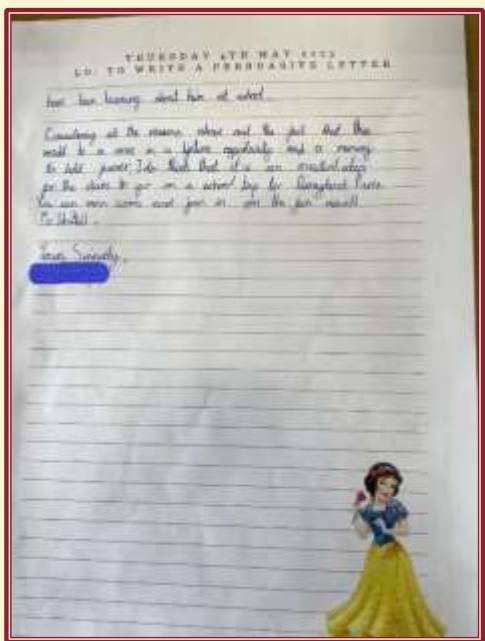 THURSDAY 4TH MAY 2023
LO: TO WRITE A PERSUASIVE LETTER
have been learning about him at school.
Considering all the reasons above and the fact that this
could be a once in a lifetime opportunity and a memory
to hold forever, I do think that it is an excellent idea
for the class to go on a school trip to Disneyland Paris.
You can even come and join in on the fun
Yours Sincerely,